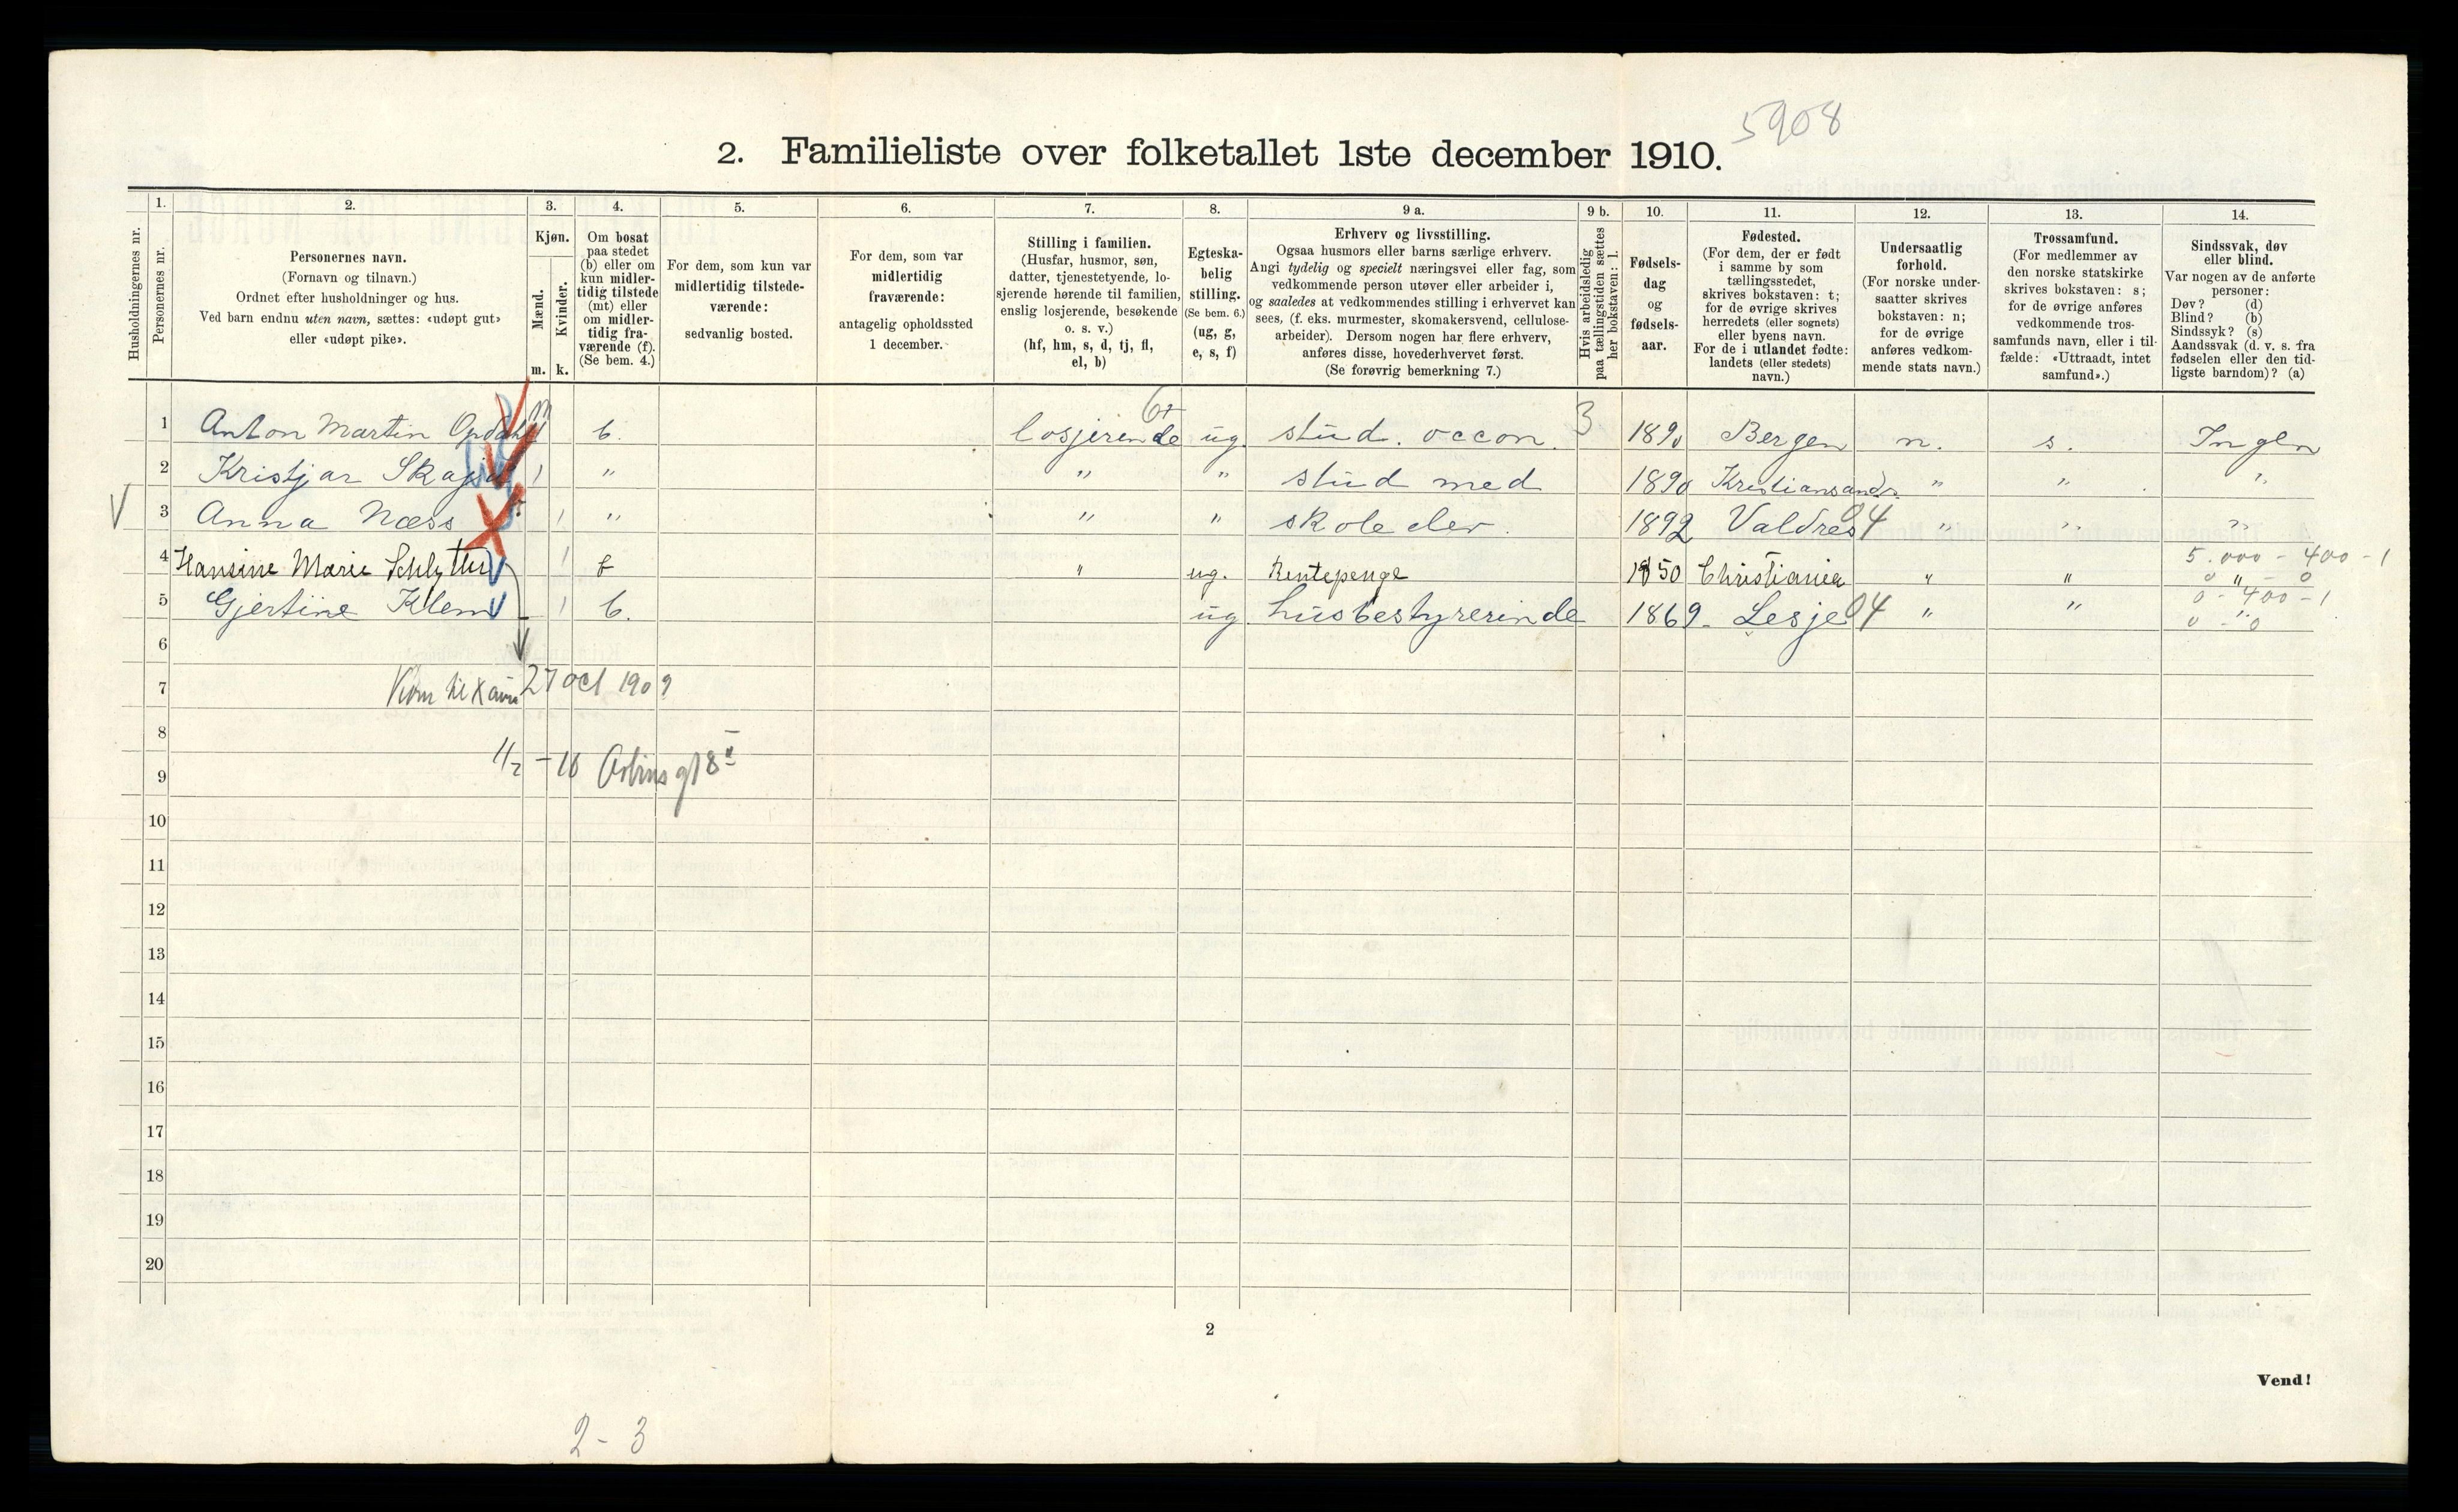 5908
2. Familieliste over folketallet 1ste december 1910.
1. 2. 3. 4. 5. 6. 7. 8. 9 a. 9 b. 10. 11. 12. 13. 14.
Husholdningernes nr.
Personernes nr.
Personernes navn.
(Fornavn og tilnavn.)
Ordnet efter husholdninger og hus.
Ved barn endnu uten navn, sættes: «udøpt gut»
eller «udøpt pike».
Kjøn.
Mænd.
Kvinder.
m. k.
Om bosat
paa stedet
(b) eller om
kun midler-
tidig tilstede
(mt) eller
om midler-
tidig fra-
værende (f).
(Se bem. 4.)
For dem, som kun var
midlertidig tilstede-
værende:
sedvanlig bosted.
For dem, som var
midlertidig
fraværende:
antagelig opholdssted
1 december.
Stilling i familien.
(Husfar, husmor, søn,
datter, tjenestetyende, lo-
sjerende hørende til familien,
enslig losjerende, besøkende
o. s. v.)
(hf, hm, s, d, tj, fl,
el, b)
Egteska-
belig
stilling.
(Se bem. 6.)
(ug, g,
e, s, f)
Erhverv og livsstilling.
Ogsaa husmors eller barns særlige erhverv.
Angi tydelig og specielt næringsvei eller fag, som
vedkommende person utøver eller arbeider i,
og saaledes at vedkommendes stilling i erhvervet kan
sees, (f. eks. murmester, skomakersvend, cellulose-
arbeider). Dersom nogen har flere erhverv,
anføres disse, hovederhvervet først.
(Se forøvrig bemerkning 7.)
Hvis arbeidsledig
paa tællingstiden sættes
her bokstaven: l.
Fødsels-
dag
og
fødsels-
aar.
Fødested.
(For dem, der er født
i samme by som
tællingsstedet,
skrives bokstaven: t;
for de øvrige skrives
herredets (eller sognets)
eller byens navn.
For de i utlandet fødte:
landets (eller stedets)
navn.)
Undersaatlig
forhold.
(For norske under-
saatter skrives
bokstaven: n;
for de øvrige
anføres vedkom-
mende stats navn.)
Trossamfund.
(For medlemmer av
den norske statskirke
skrives bokstaven: s;
for de øvrige anføres
vedkommende tros-
samfunds navn, eller i til-
fælde: «Uttraadt, intet
samfund».)
Sindssvak, døv
eller blind.
Var nogen av de anførte
personer:
Døv? (d)
Blind? (b)
Sindssyk? (s)
Aandssvak (d. v. s. fra
fødselen eller den tid-
ligste barndom)? (a)
1 Anton Martin Opdahl 1 b. losjerende ug. stud. occon. 3 1890 Bergen n. s. Ingen
2 Kristjar 1 " " " stud med 1890 Kristiansand " " "
3 Anna Næss 1 " " " skole elev. 1892 Valdres 04 " " "
4 Hansine Marie Schlytter 1 f " ug. Rentepenge 1850 Christiania " " 5.000 - 400 - 1
0 " - 0
5 Gjertine Klem 1 b. ug. husbestyrerinde 1869 Lesje 04 " " 0 - 400 - 1
0 - " 0
6
7 Kom til Xania 27 oct 1909
8
9 1/2 - 16
10
11
12
13
14
15
16
17
18
19
20
2
Vend!
2 - 3